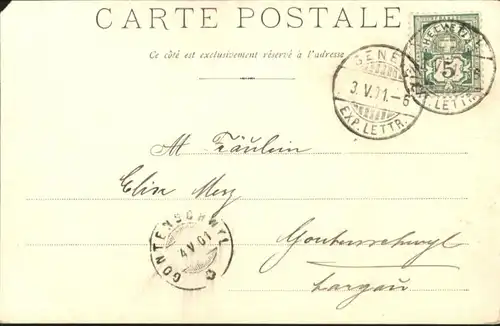 CARTE POSTALE
Ce côté est exclusivement réservé à l'adresse.
HELVETIA
5
GENÈVE
3.V.01.-6
EXP. LETTR.
EXP. LETTR.
Fräulein
Elise Merz
GONTENSCHWYL
4 V 01
Gontenschwyl
Aargau